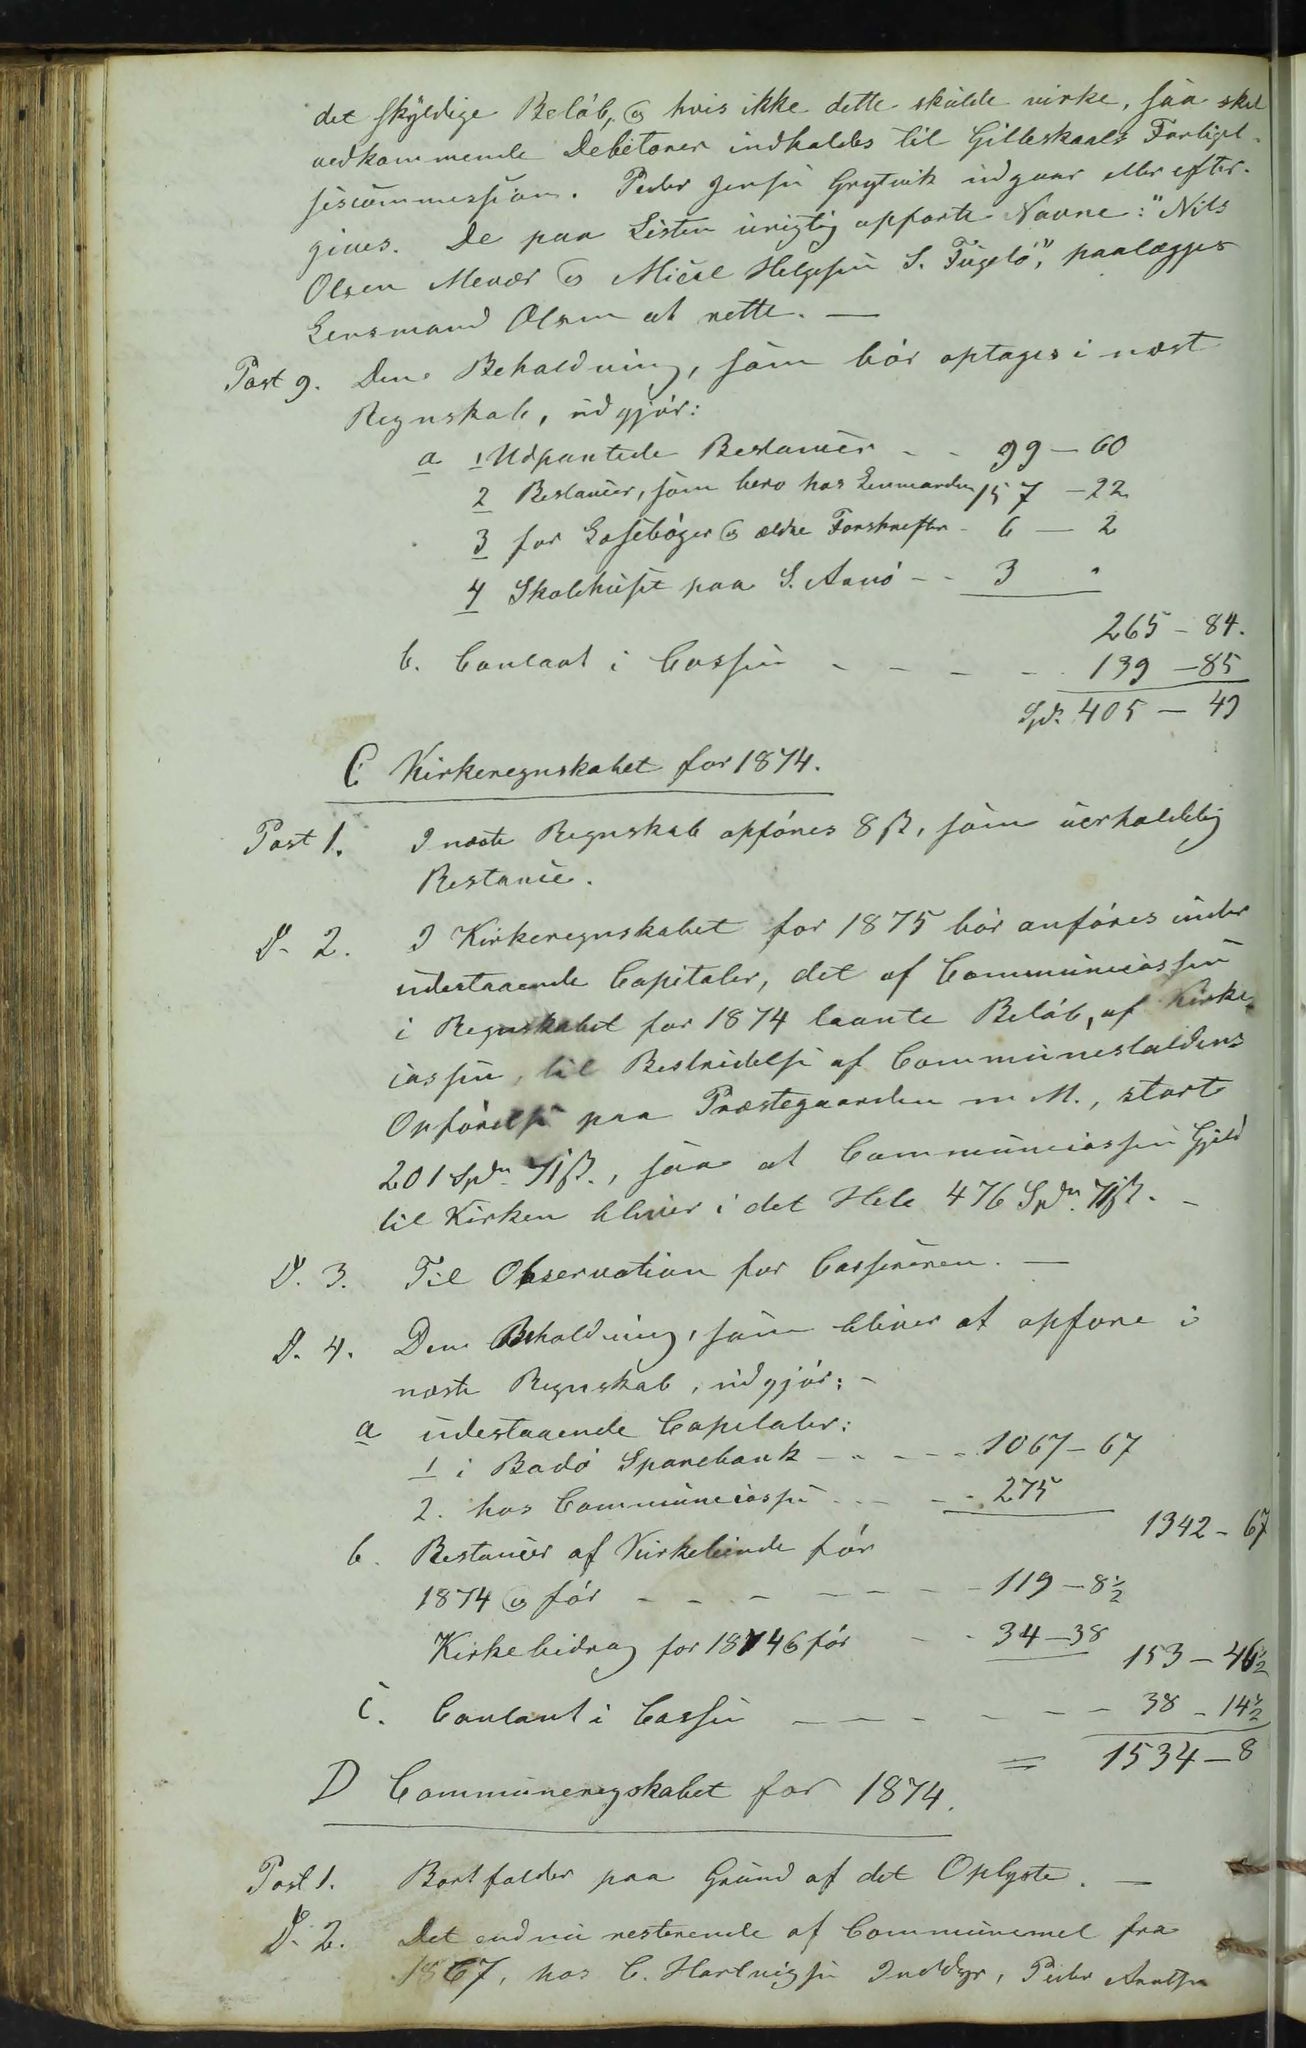 det skyldige Beløb, og hvis ikke dette skulde virke, saa skal
vedkommende Debitorer indkaldes til Gilleskaals Forligel-
sescommission. Peder Jensen Grytvik udgaar eller efter-
gives. De paa Listen urigtig opførte Navne: "Nils
Olsen Mevær og Mical Helgesen S. Fugelø", paalægges
Lensmand Olsen at rette. —
Post 9. Den Behaldning, som bør optages i næst
Regnskab, udgjør:
a 1 Udpantede Restancer - - 99 - 60
2 Restancer, som bero hos Lensmanden 157 - 22
3 for Læsebøger og ældre Forskrifter - 6 - 2
4 Skolehuset paa S. Arnø - - 3 "
265 - 84.
b. Contant i Cassen - - - - 139 - 85
Spd. 405 - 49
C Kirkeregnskabet for 1874.
Post 1. I næste Regnskab opføres 8 ß, som uerholdelig
Restance.
D. 2. I Kirkeregnskabet for 1875 bør anføres under
udestaaende Capitaler, det af Communecassen
i Regnskabet for 1874 laante Beløb, af Kirke-
cassen, til Bestridelse af Communestaldens
Opførelse paa Præstegaarden m. M., stort
201 Spdr. 71 ß., saa at Communecassens Gjeld
til Kirken bliver i det Hele 476 Spdr. 71 ß. -
D. 3. Til Observation for Cassereren. —
D. 4. Den Behaldning, som bliver at opføre i
næste Regnskab, udgjør: -
a udestaaende Capitaler:
1 i Bodø Sparebank - - - - 1067 - 67
2. hos Communecassen - - - 275
1342 - 67
b. Restancer af Kirketiende for
1874 og før - - - - - - 119 - 8½
Kirkebidrag for 1874 og før - - 34 - 38
153 - 46½
c. Contant i Cassen - - - - - - 38 - 14½
= 1534 - 8
D Communeregskabet for 1874.
Post 1. Bortfalder paa Grund af det Oplyste. —
D. 2. Det endnu resterende af Communemel fra
1867, hos C. Hartvigsen Inddyr, Peder Arntsen